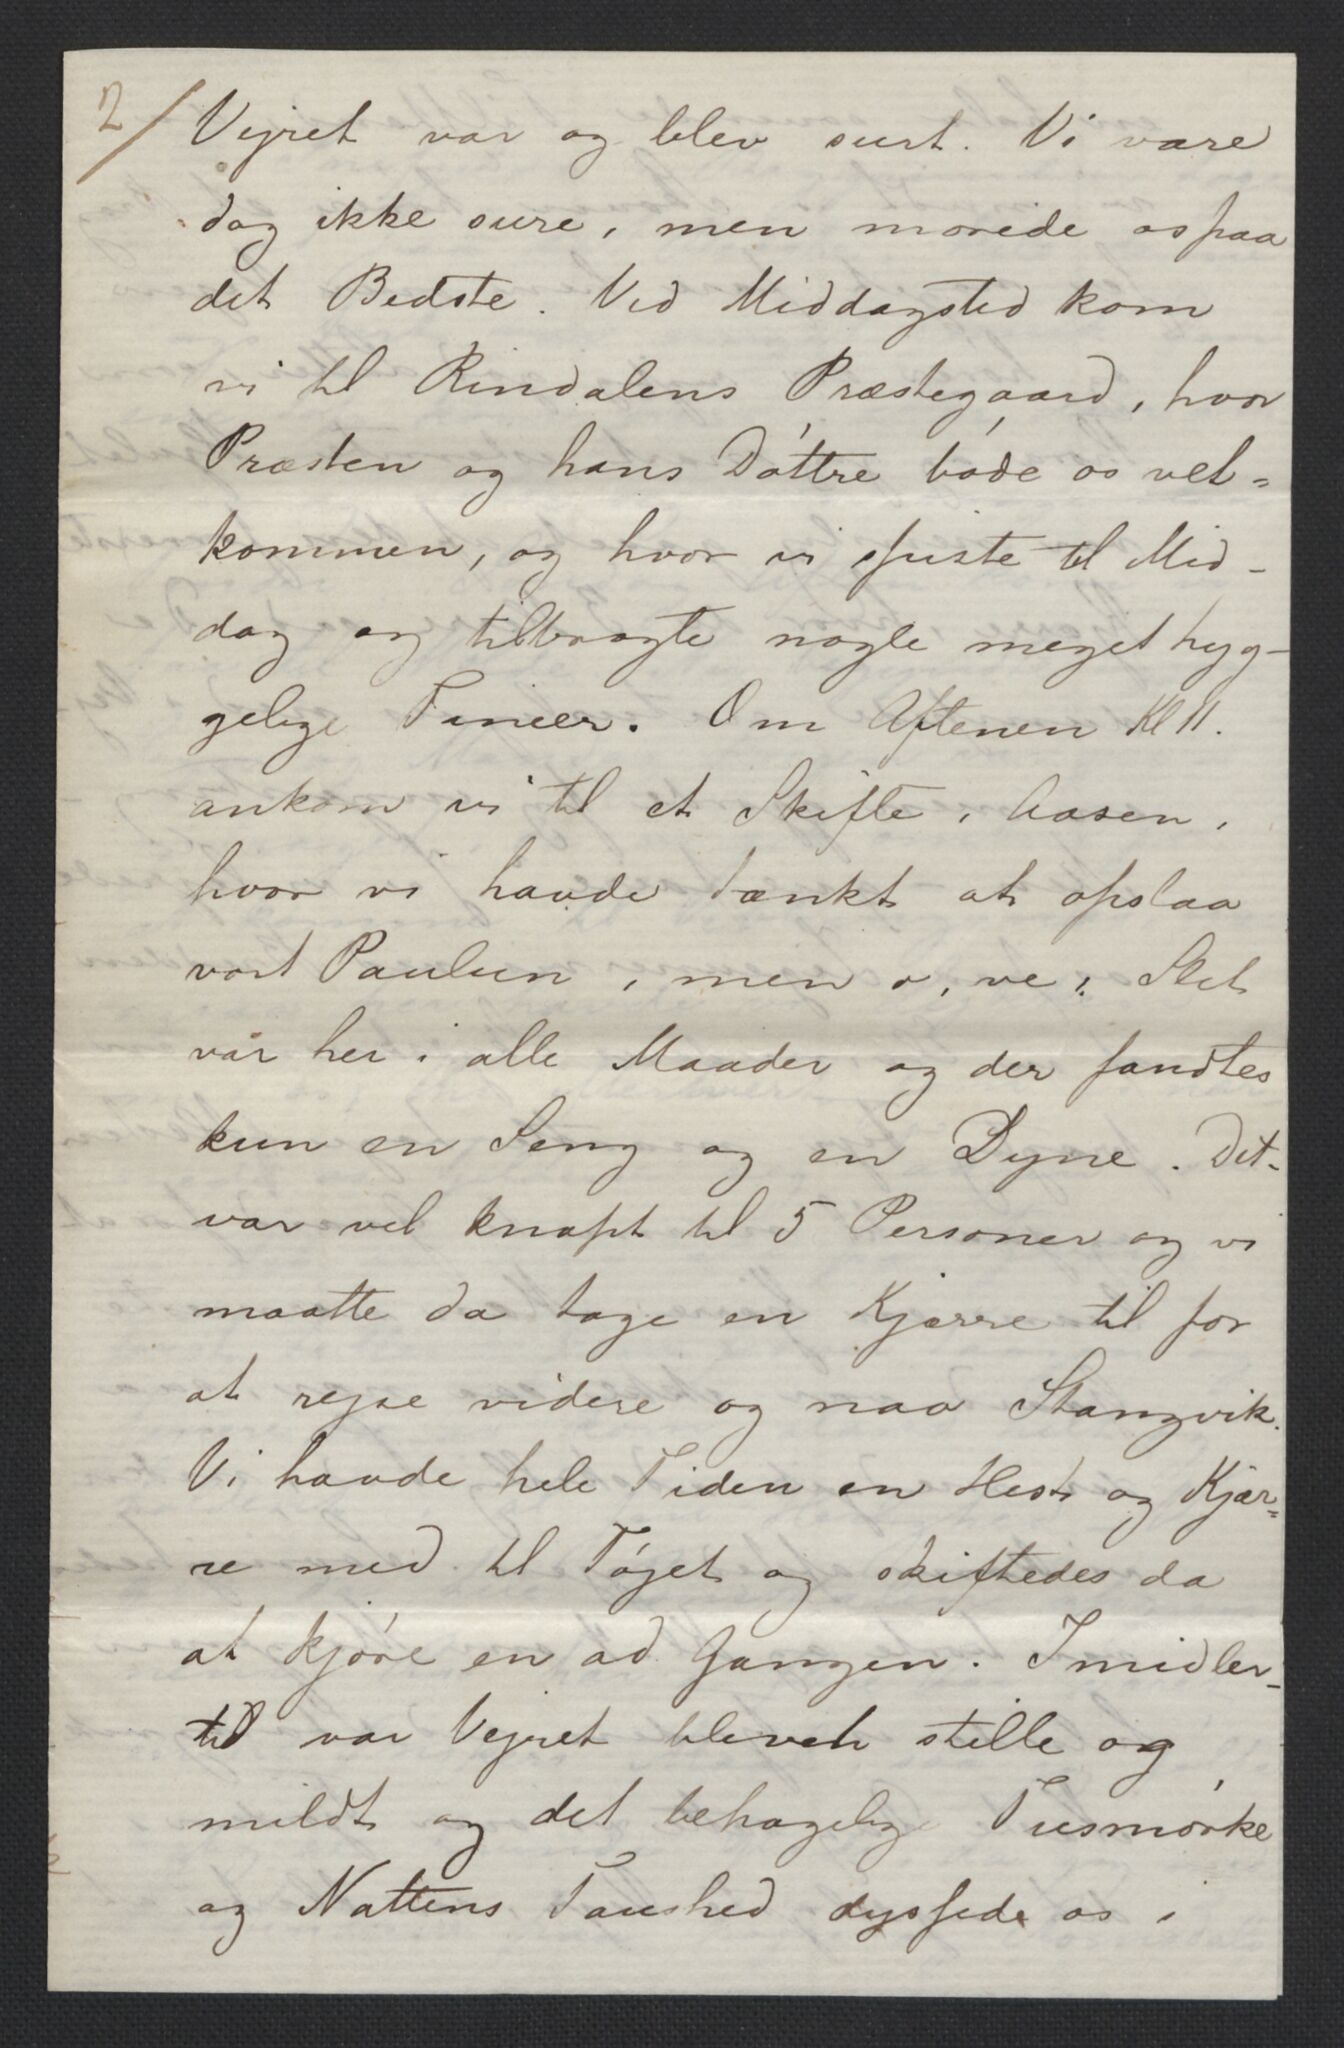 2/
Vejret var og blev surt. Vi vare
dog ikke sure, men morede os paa
det Bedste. Ved Middagstid kom
vi til Rindalens Præstegaard, hvor
Præsten og hans Døttre bøde os vel=
kommen, og hvor vi spiste til Mid-
dag og tilbragte nogle meget hyg-
gelige Timer. Om Aftenen Kl 11.
ankom vi til et Skifte, Aasen,
hvor vi havde tænkt at opslaa
vort Paulun, men o, ve! Slet
var her i alle Maader og der fandtes
kun en Seng og en Dyne. Det
var vel knapt til 5 Personer og vi
maatte da tage en Kjærre til for
at rejse videre og naa Stangvik.
Vi havde hele Tiden en Hest og Kjær=
re med til Tøjet og skiftedes da
at kjøre en ad Gangen. Imidler-
tid var Vejret blevet stille og
mildt og det behagelige Tusmørke
og Nattens Taushed dyssede os i